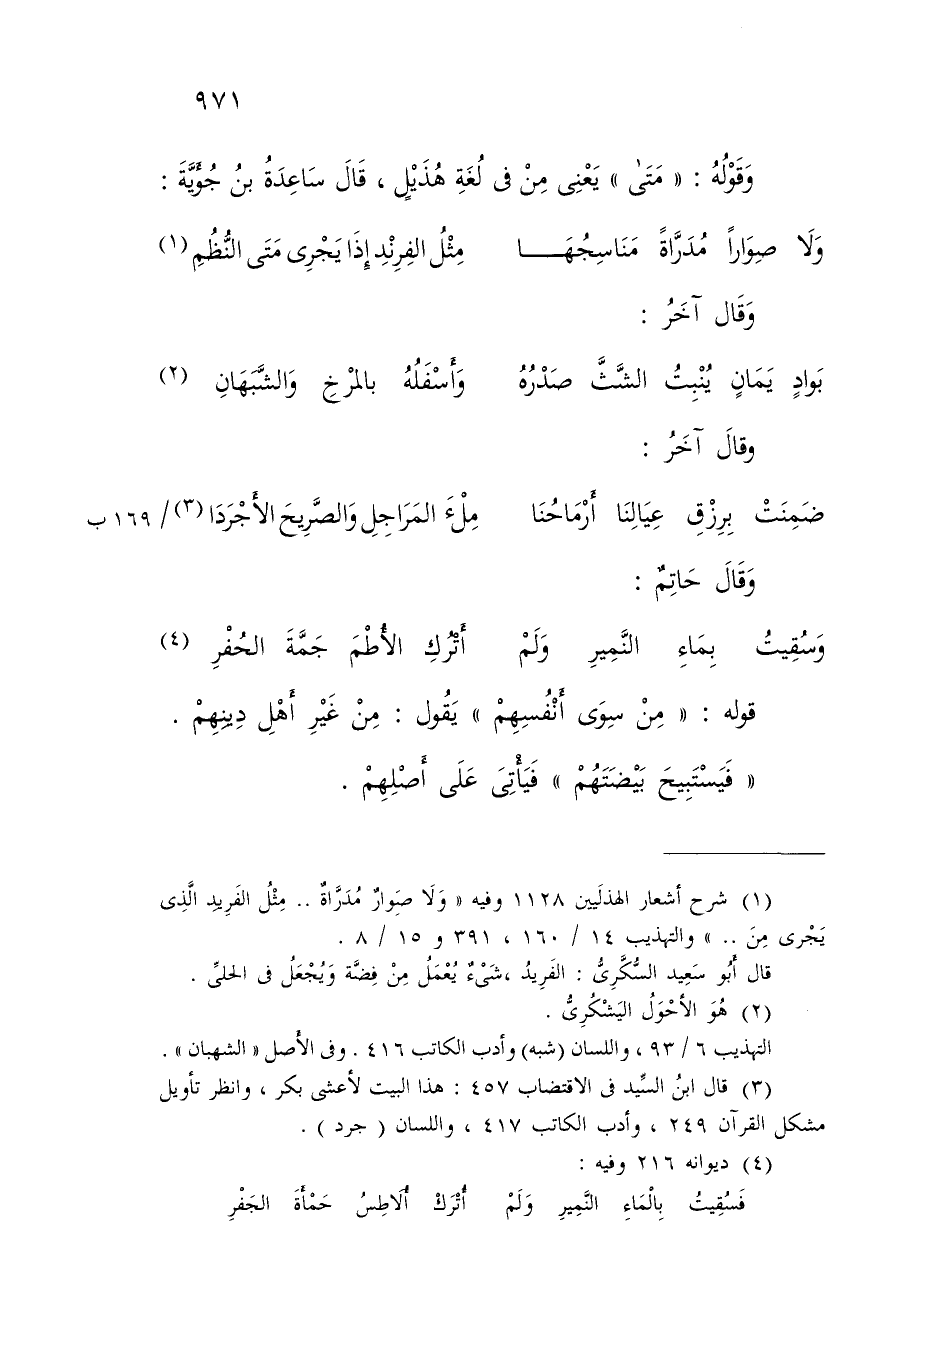 ٩٧١
وَقَوْلُهُ : « مَتَىٰ » يَعْنِى مِنْ فى لُغَةِ هُذَيْلٍ ، قَالَ سَاعِدَةُ بنُ جُؤَيَّةَ :
وَلَا صِوَاراً مُدَرَّاةً مَنَاسِجُهَا مِثْلُ الفِرِنْدِ إِذَا يَجْرِى مَتَى النُّظُمِ (١)
وَقَال آخَرُ :
بَوادٍ يَمَانٍ يُنْبِتُ الشَّثَّ صَدْرُهُ وَأَسْفَلُهُ بالمَرْخِ وَالشَّبَهَانِ (٢)
وقالَ آخَرُ :
ضَمِنَتْ بِرِزْقِ عِيَالِنَا أَرْمَاحُنَا مِلْءَ المَرَاجِلِ وَالصَّرِيحَ الأَجْرَدَا (٣) / ١٦٩ ب
وَقَالَ حَاتِمٌ :
وَسُقِيتُ بِمَاءِ النَّمِيرِ وَلَمْ أَتْرُكِ الأُطْمَ جَمَّةَ الحُفْرِ (٤)
قوله : « مِنْ سِوَى أَنْفُسِهِمْ » يَقُول : مِنْ غَيْرِ أَهْلِ دِينِهِمْ .
« فَيَسْتَبِيحَ بَيْضَتَهُمْ » فَيَأْتِىَ عَلَى أَصْلِهِمْ .
(١) شرح أشعار الهذلَيين ١١٢٨ وفيه « وَلَا صِوارٌ مُدَرَّاةٌ .. مِثْلُ الفَرِيدِ الَّذِى
يَجْرِى مِنَ .. » والتهذيب ١٤ / ١٦٠ ، ٣٩١ و ١٥ / ٨ .
قال أَبُو سَعِيد السُّكَّرِىُّ : الفَرِيدُ ، شَىْءٌ يُعْمَلُ مِنْ فِضَّة وَيُجْعَلُ فى الحلىِّ .
(٢) هُوَ الأحْوَلُ اليَشْكُرِىُّ .
التهذيب ٦ / ٩٣ ، واللسان (شبه) وأدب الكاتب ٤١٦ . وفى الأَصل « الشهبان » .
(٣) قال ابنُ السِّيد فى الاقتضاب ٤٥٧ : هذا البيت لأعشى بكر ، وانظر تأويل
مشكل القرآن ٢٤٩ ، وأدب الكاتب ٤١٧ ، واللسان ( جرد ) .
(٤) ديوانه ٢١٦ وفيه :
فَسُقِيتُ بِالْمَاءِ النَّمِيرِ وَلَمْ أُتْرَكْ أُلَاطِسُ حَمْأَةَ الجَفْرِ